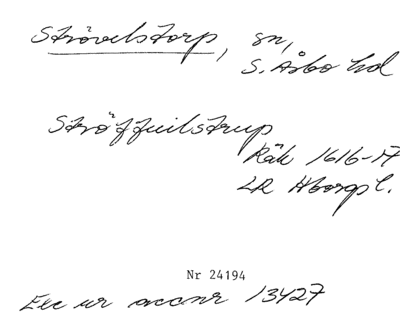 Strövelstorp, sn,
S. Åsbo hd
Ströffuilstrup
Räk 1616-17
LR Hborgs l.
Nr 24194
Exc ur accnr 13427